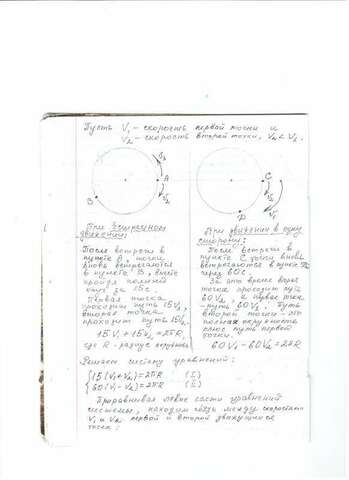 Пусть V₁ - скорость первой точки и
V₂ - скорость второй точки, V₂ < V₁.
V₂
A
V₁
B
C
V₂
V₁
D
При встречном
движении:
После встречи в
пункте A, точки
вновь встречаются
в пункте B, вместе
пройдя полный
круг за 15с.
Первая точка
проходит путь 15V₁,
вторая точка
проходит путь 15V₂
15V₁ + 15V₂ = 2πR
где R - радиус окружн
При движении в одну
сторону:
После встречи в
пункте C точки вновь
встречаются в пункте
через 60с.
За это время вторая
точка проходит путь
60V₂, а первая точка
- путь 60V₁. Путь
второй точки - это
полная окружность
плюс путь первой
точки.
60V₁ - 60V₂ = 2πR
Решаем систему уравнений:
{15(V₁+V₂) = 2πR (I)
{60(V₁-V₂) = 2πR (II)
Приравнивая левые части уравнений
системы, находим связь между скоростями
V₁ и V₂ первой и второй движущихся
точек: